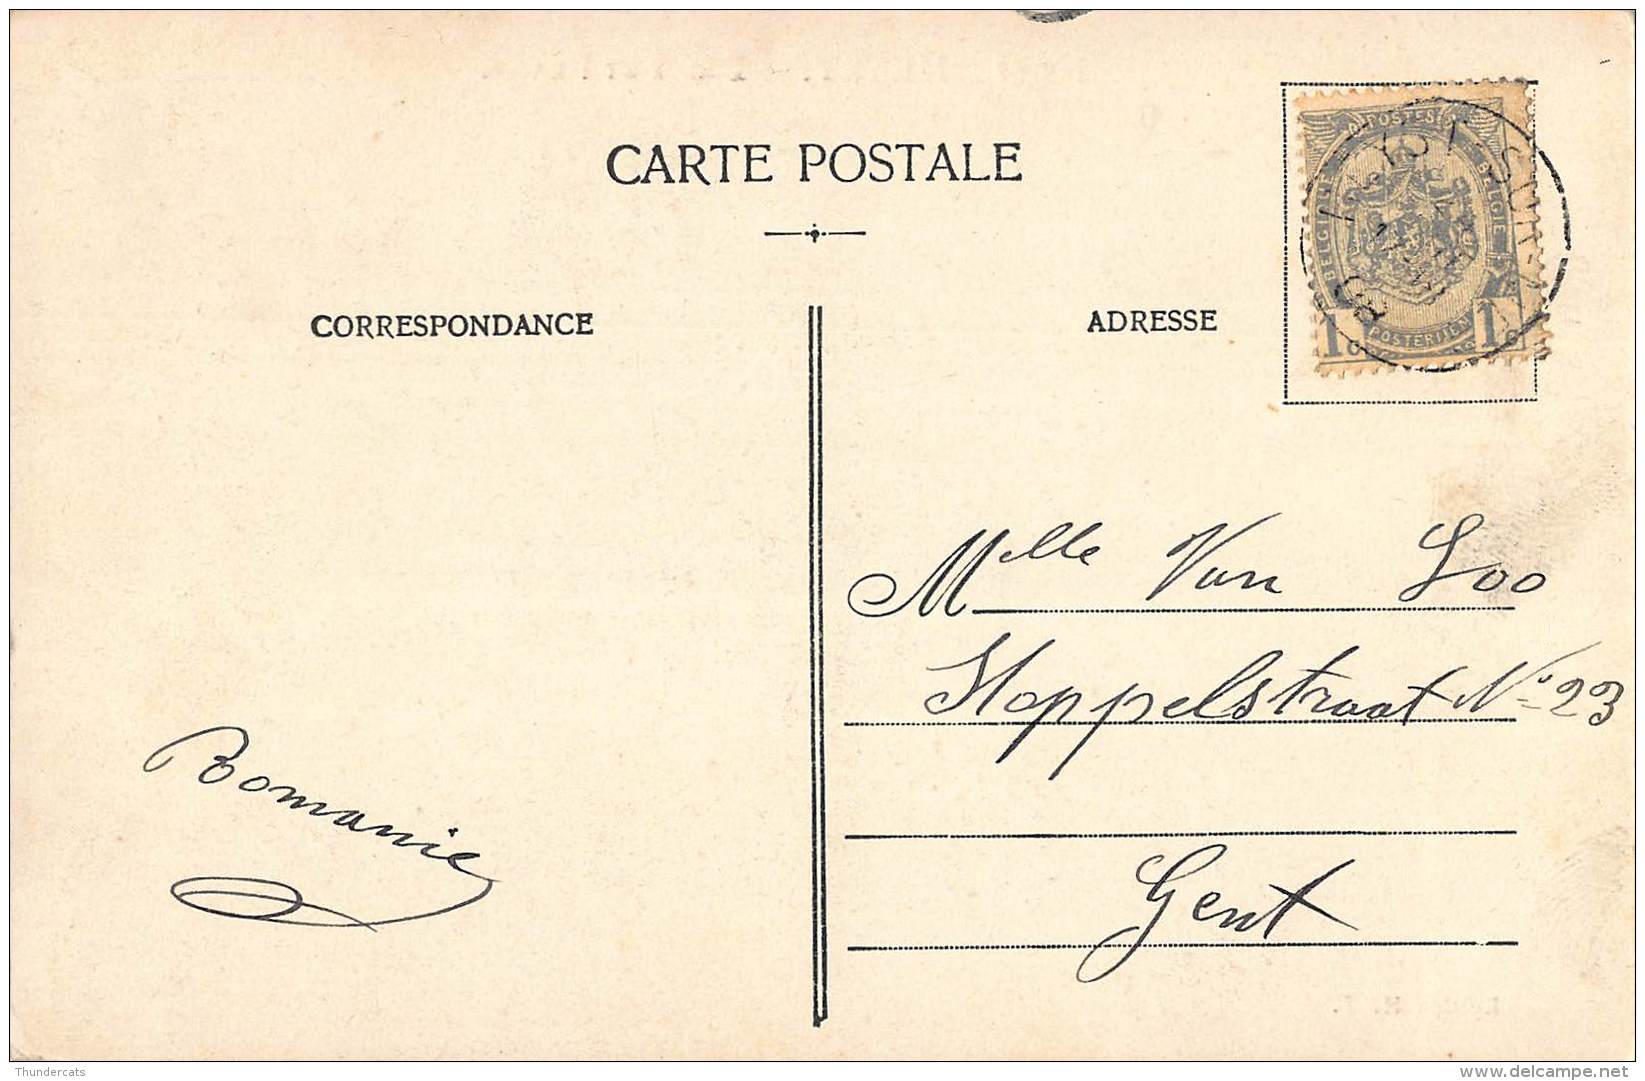 CARTE POSTALE
CORRESPONDANCE
ADRESSE
POSTES
BELGIQUE
BELGIE
1c 1c
POSTERIJEN
Mlle Van Loo
Hoppelstraat No 23
Gent
Romanie
Thundercats
www.delcampe.net